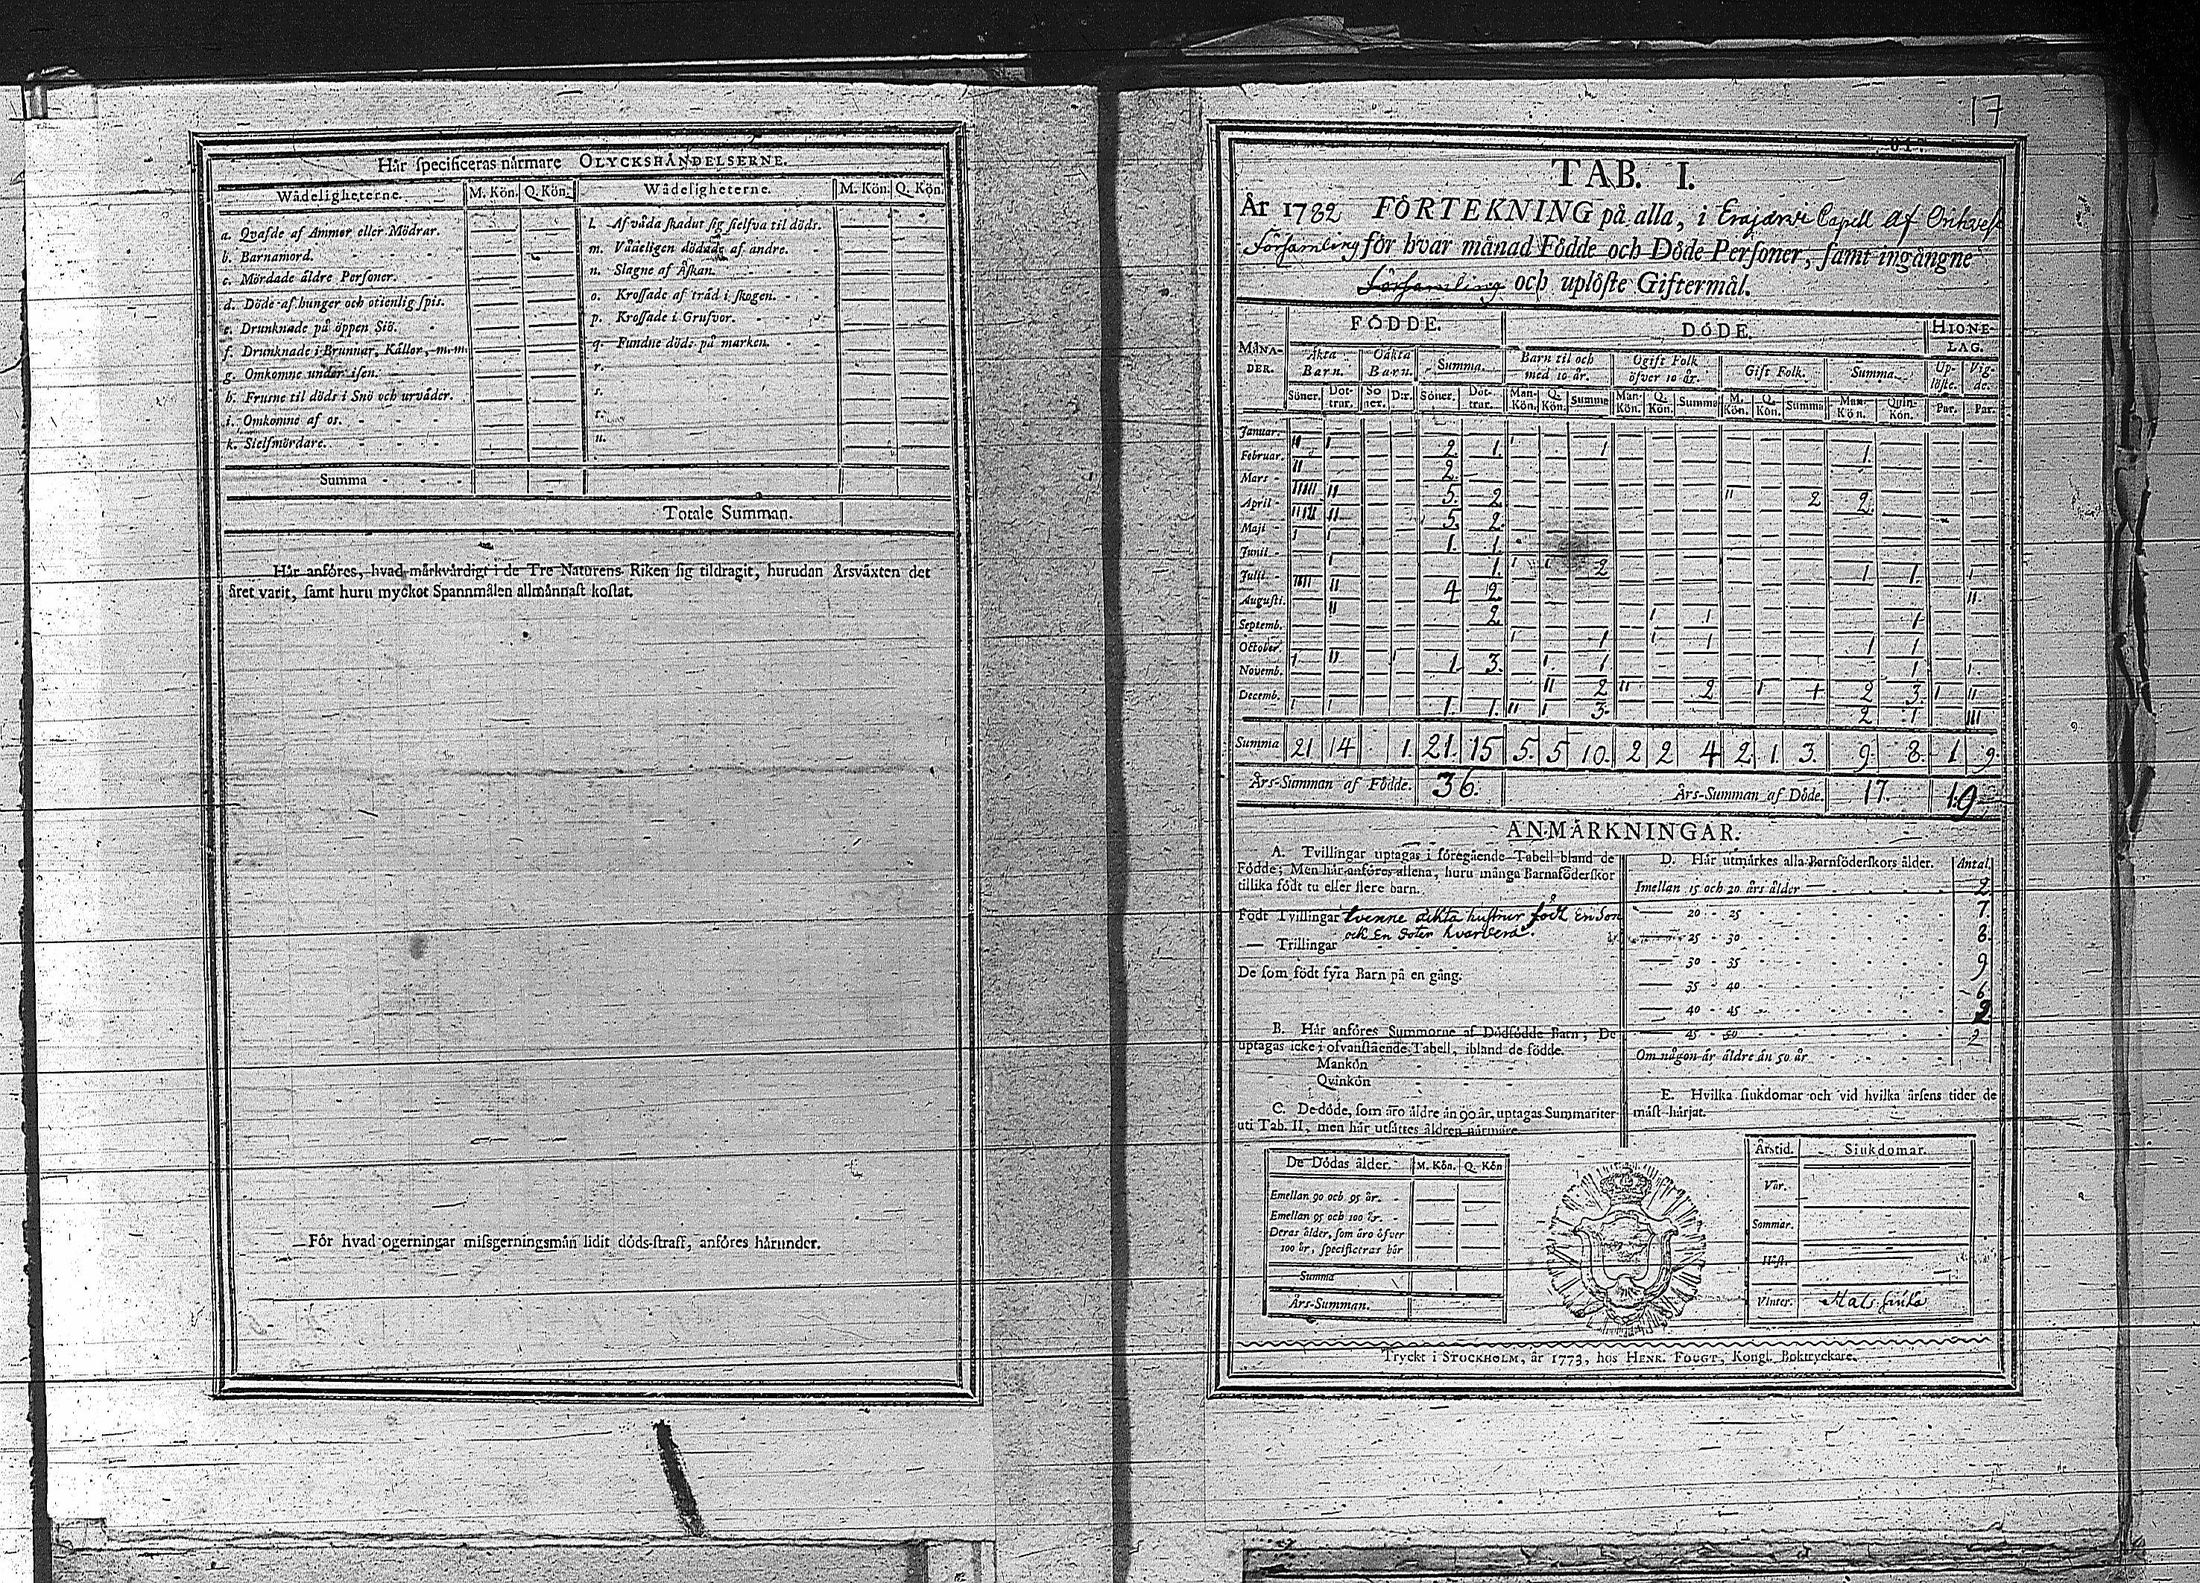 Hår specificeras nårmare OLYCKSHÅNDELSERNE.
Wådeligheterne. M. Kön. Q. Kön. Wådeligheterne. M. Kön. Q. Kön.
a. Qvafde af Ammor eller Mödrar.
b. Barnamord.
c. Mördade äldre Personer.
d. Döde af hunger och otienlig spis.
e. Drunknade på öppen Siö.
f. Drunknade i Brunnar, Källor, m.m.
g. Omkomne under isen.
h. Frusne til döds i Snö och urväder.
i. Omkomne af os.
k. Sielfmördare.
l. Af våda skadat sig sielfva til döds.
m. Vådeligen dödade af andre.
n. Slagne af Åskan.
o. Krossade af träd i skogen.
p. Krossade i Grufvor.
q. Fundne döde på marken.
r.
s.
t.
u.
Summa
Totale Summan.
Hår anföres, hvad mårkvårdigt i de Tre Naturens Riken sig tildragit, hurudan Årsvåxten det
året varit, samt huru myckot Spannmålen allmånnast kostat.
För hvad ogerningar missgerningsmån lidit döds-straff, anföres hårunder.
17
TAB. I.
År 1782 FÖRTEKNING på alla, i Erajärvi Capell Af Orihvesi
Församling för hvar månad Födde och Döde Personer, samt ingångne
Församling och uplöste Giftermål.
MÅNA-DER. FÖDDE. DÖDE. HIONE-LAG.
Äkta Barn. Oäkta Barn. Summa. Barn til och med 10 år. Ogift Folk öfver 10 år. Gift Folk. Summa. Up-löste. Vig-de.
Söner. Döt-trar. So-ner. Dr. Söner. Döt-trar. Man-Kön. Q. Kön. Summa Man-Kön. Q. Kön. Summa M. Kön. Q. Kön. Summa Man-Kön. Quin-Kön. Par. Par.
Januar. 11 1 2. 1. 1 1 1.
Februar. 11 2.
Mars 11111 11 5. 2 11 2 2
April 11111 11 5. 2.
Maji 1 1 1. 1.
Junii 1 1. 1 1 2 1 1. 1
Julii 1111 11 4 2. 11.
Augusti. 11 2. 1 1 1.
Septemb. 1 1 1 1 1 1
October. 1 11 1 1. 3. 1 1 1 1.
Novemb. 11 2 11 2 1 1 2 3. 1 11
Decemb. 1 1 1. 1. 11 1 3. 2 1 111
Summa 21 14 1. 21. 15 5. 5 10. 2 2 4 2. 1. 3. 9. 8. 1. 9.
Års-Summan af Födde. 36. Års-Summan af Döde. 17.
ANMÄRKNINGAR.
A. Tvillingar uptagas i föregående Tabell bland de
Födde; Men hår anföres allena, huru många Barnaföderskor
tillika födt tu eller flere barn.
Födt Tvillingar tvenne äkta hustrur födt en son
och en doter hvardera.
— Trillingar
De som födt fyra Barn på en gång.
B. Hår anföres Summorne af Dödfödde Barn; De
uptagas icke i ofvanstående Tabell, ibland de födde.
Mankön
Qvinkön
C. De döde, som åro åldre än 90 år, uptagas Summariter
uti Tab. II, men hår utsåttes åldren nårmare.
D. Hår utmårkes alla Barnföderskors ålder. Antal
Imellan 15 och 20 års ålder 2.
— 20 - 25 7.
— 25 - 30 8.
— 30 - 35 9
— 35 - 40 6.
— 40 - 45 2.
— 45 - 50 2
Om någon år åldre än 50 år.
E. Hvilka siukdomar och vid hvilka årsens tider de
måst hårjat.
De Dödas ålder. M. Kön. Q. Kön
Emellan 90 och 95 år.
Emellan 95 och 100 år.
Deras ålder, som äro öfver
100 år, specificeras här
Summa
Års-Summan.
Årstid. Siukdomar.
Vår.
Sommar.
Höst.
Vinter.
Tryckt i STOCKHOLM, år 1773, hos HENR. FOUGT, Kongl. Boktryckare.